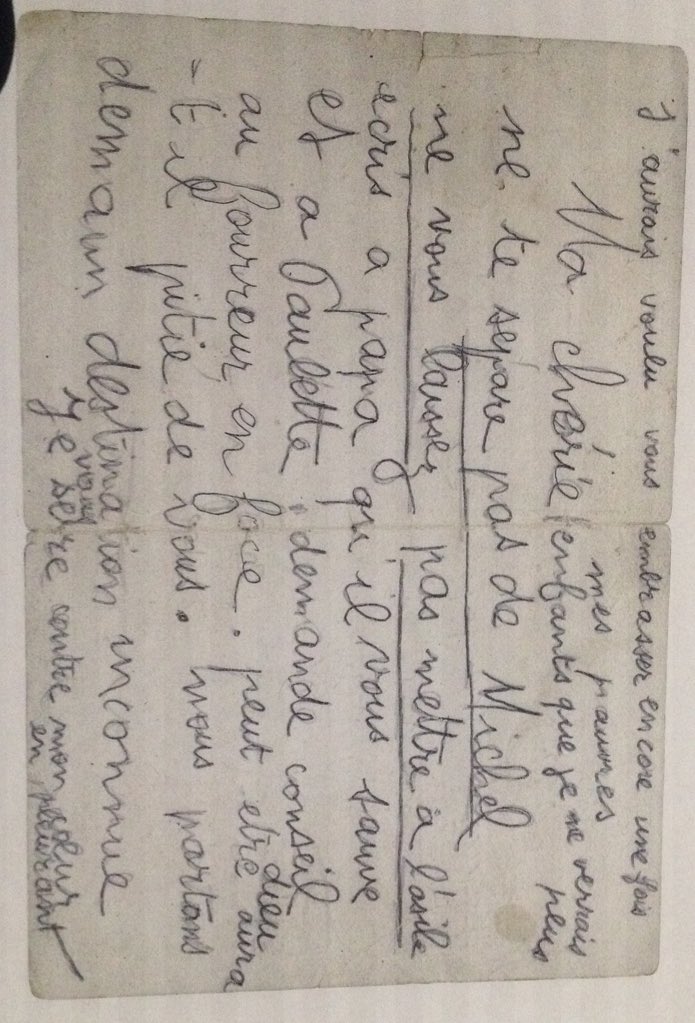 j'aurais voulu vous embrasser encore une fois
mes pauvres
Ma chérie enfants que je ne verrais
plus
ne te sépare pas de Michel
ne vous laissez pas mettre a l'asile
ecris a papa qu'il vous sauve
et a Paulette demande conseil
au fourreur en face. peut etre dieu aura
-t il pitié de vous. nous partons
demain destination inconnue
Je vous serre contre mon coeur
en pleurant